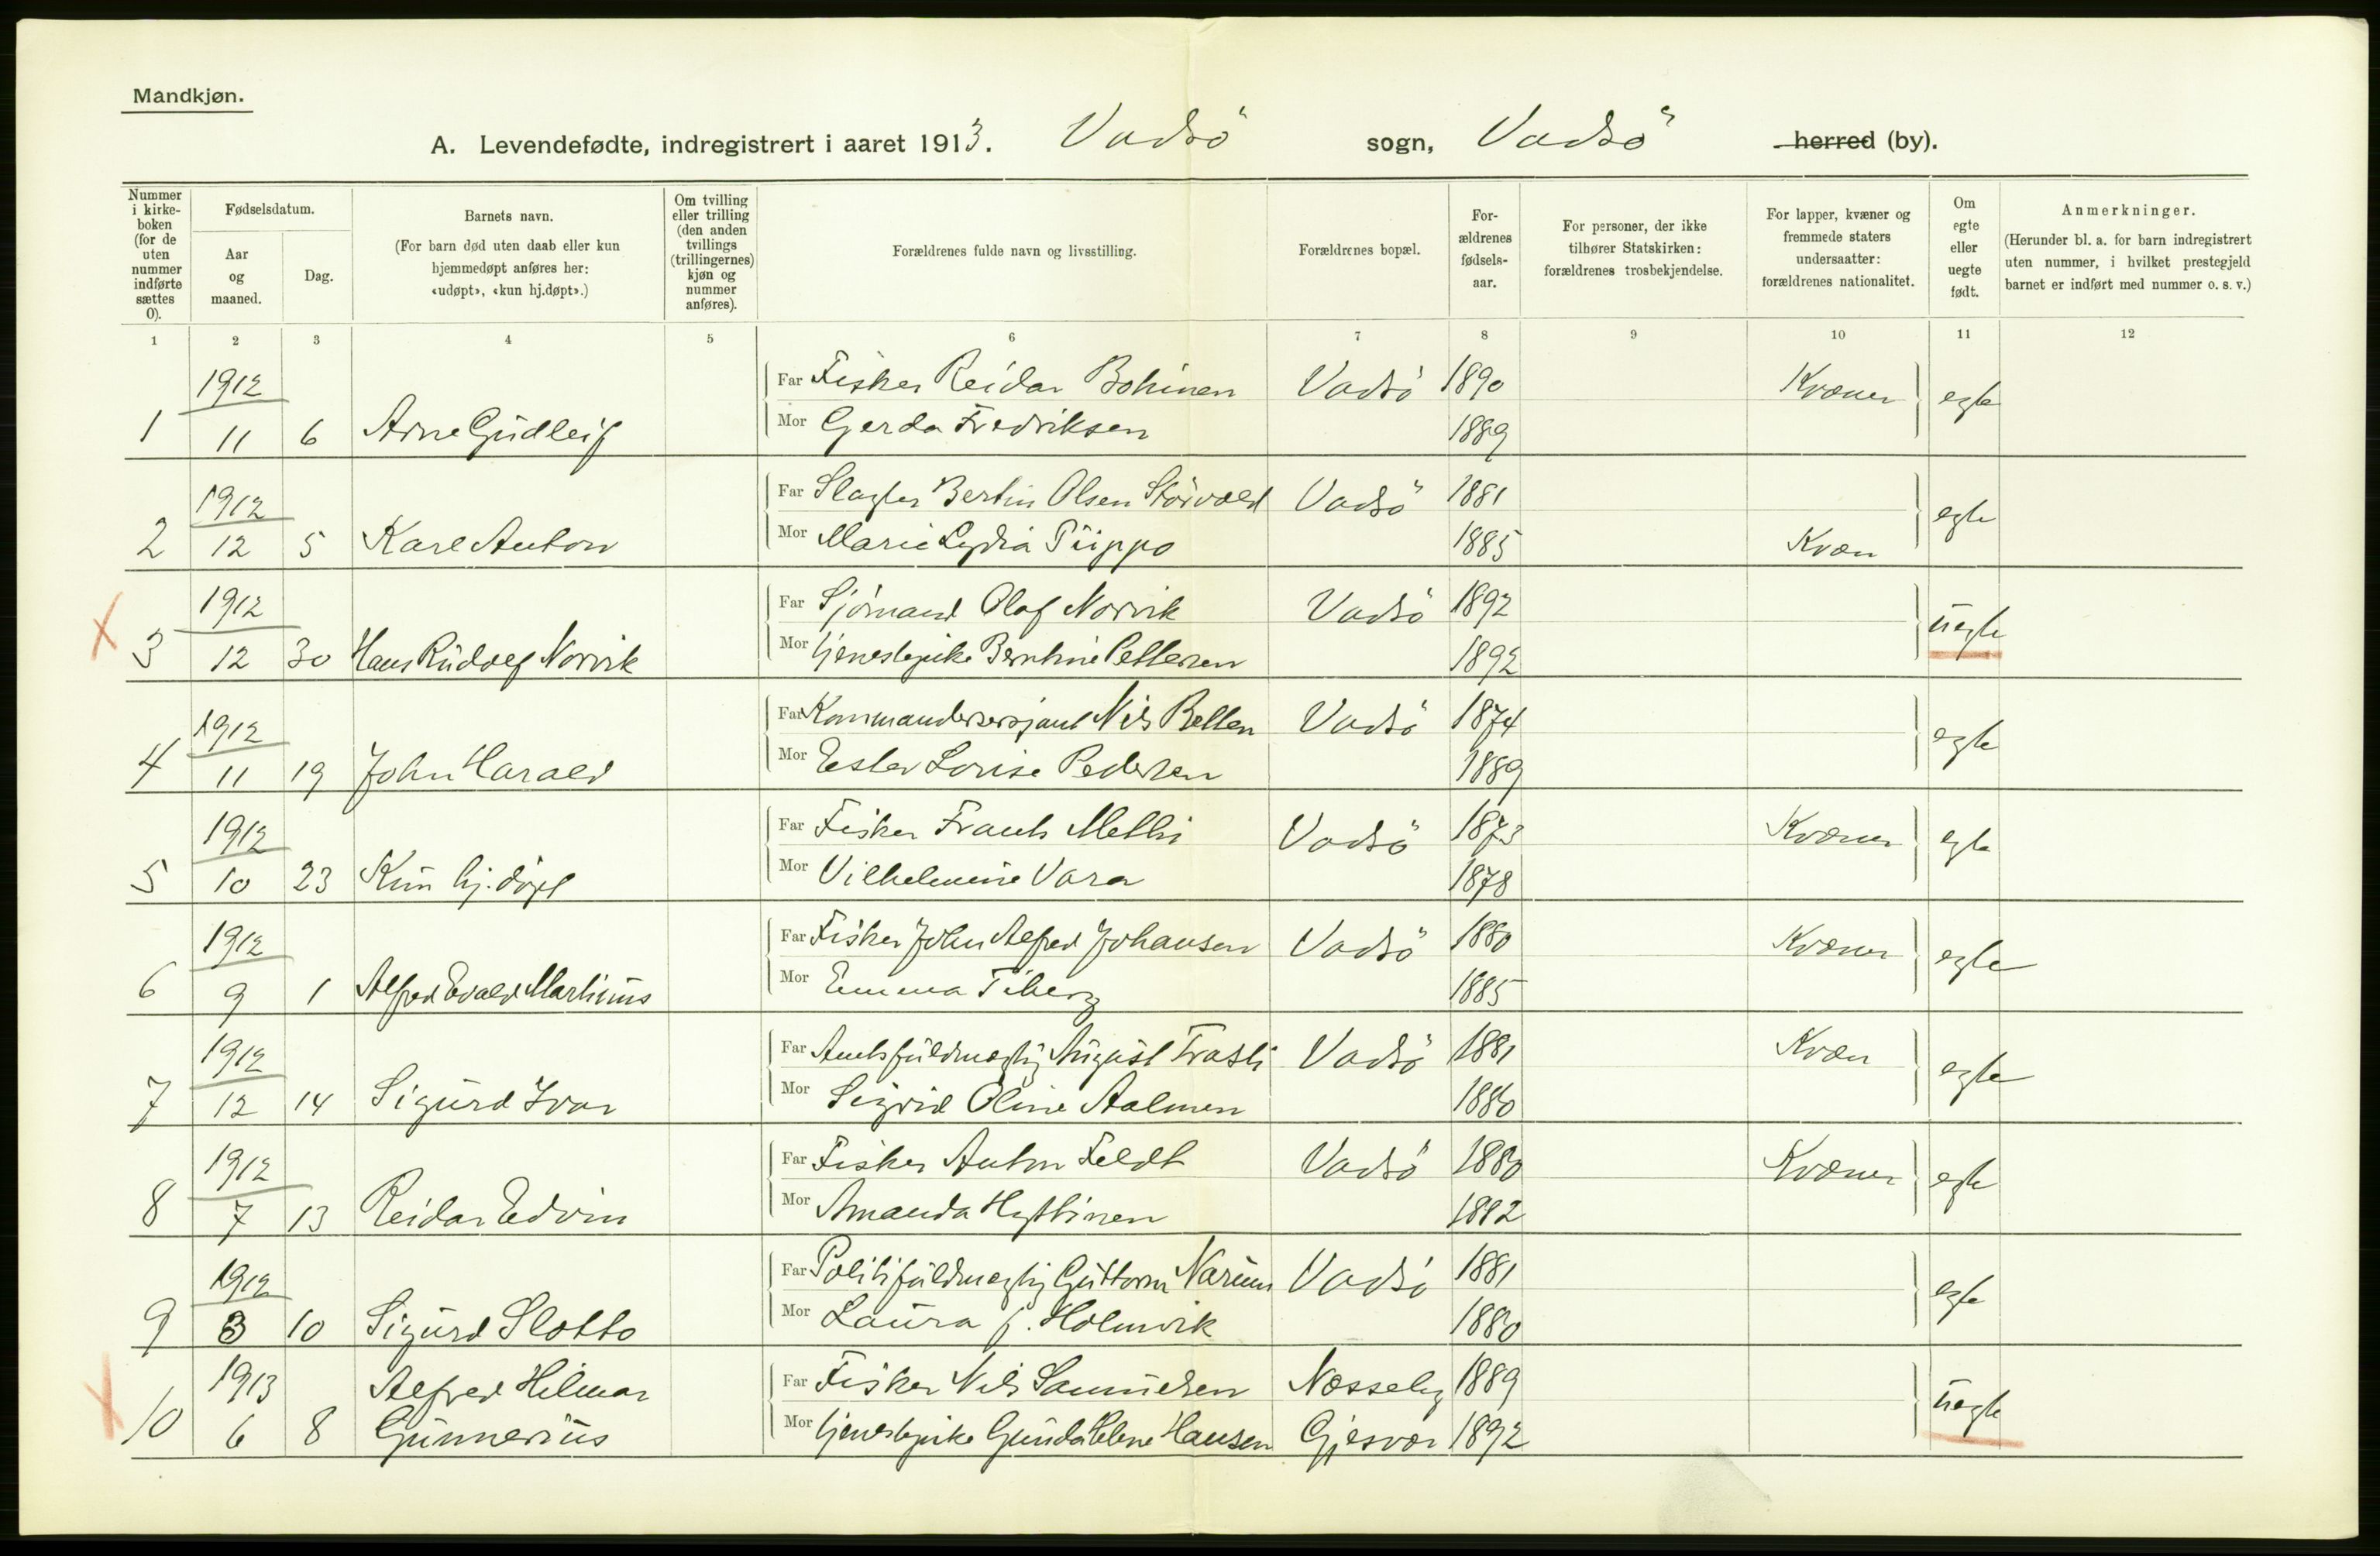 Mandkjøn.
A. Levendefødte, indregistrert i aaret 1913. Vadsö sogn, Vadsö herred (by).
Nummer i kirke-boken (for de uten nummer indførte sættes 0).
Fødselsdatum.
Aar og maaned.
Dag.
Barnets navn.
(For barn død uten daab eller kun hjemmedøpt anføres her: «udøpt», «kun hj.døpt».)
Om tvilling eller trilling (den anden tvillings (trillingernes) kjøn og nummer anføres).
Forældrenes fulde navn og livsstilling.
Forældrenes bopæl.
For-ældrenes fødsels-aar.
For personer, der ikke tilhører Statskirken: forældrenes trosbekjendelse.
For lapper, kvæner og fremmede staters undersaatter: forældrenes nationalitet.
Om egte eller uegte født.
Anmerkninger.
(Herunder bl. a. for barn indregistrert uten nummer, i hvilket prestegjeld barnet er indført med nummer o. s. v.)
1 2 3 4 5 6 7 8 9 10 11 12
1912 Far Fisker Reidar Bohinen Vadsö 1890 Kvæner egte
1 11 6 Arne Gudleif Mor Gerda Fredriksen 1889
1912 Far Slagter Bertin Olsen Vadsö 1881 egte
2 12 5 Karl Anton Mor Marie Lydia Piippo 1885 Kvæn
1912 Far Sjömand Olaf Norvik Vadsö 1892 uegte
3 12 30 Hans Rudolf Norvik Mor tjenestepike Berntine Pettersen 1892
1912 Far Kommandersersjant Nils Vadsö 1874 egte
4 11 19 John Harald Mor Ester Lovise Pedersen 1889
1912 Far Fisker Frants Vadsö 1873 Kvæner egte
5 10 23 Kun hj. döpt Mor Vilhelmine Vara 1878
1912 Far Fisker John Alfred Johansen Vadsö 1880 Kvæner egte
6 9 1 Alfred Evald Martinus Mor Emma Tiberg 1885
1912 Far Amtsfuldmægtig August Trasti Vadsö 1881 Kvæn egte
7 12 14 Sigurd Ivar Mor Sigrid Oline Aalmen 1880
1912 Far Fisker Anton Feldt Vadsö 1880 Kvæner egte
8 7 13 Reidar Edvin Mor Amanda Hyttinen 1882
1912 Far Politifuldmægtig Guttorm Narum Vadsö 1881 egte
9 3 10 Sigurd Slotto Mor Laura J. Holmvik 1880
1913 Alfred Hilmar Far Fisker Nils Samuelsen Næsseby 1889 uegte
10 6 8 Gunnerius Mor tjenestepike Gunda Helene Hansen Gjesvær 1892